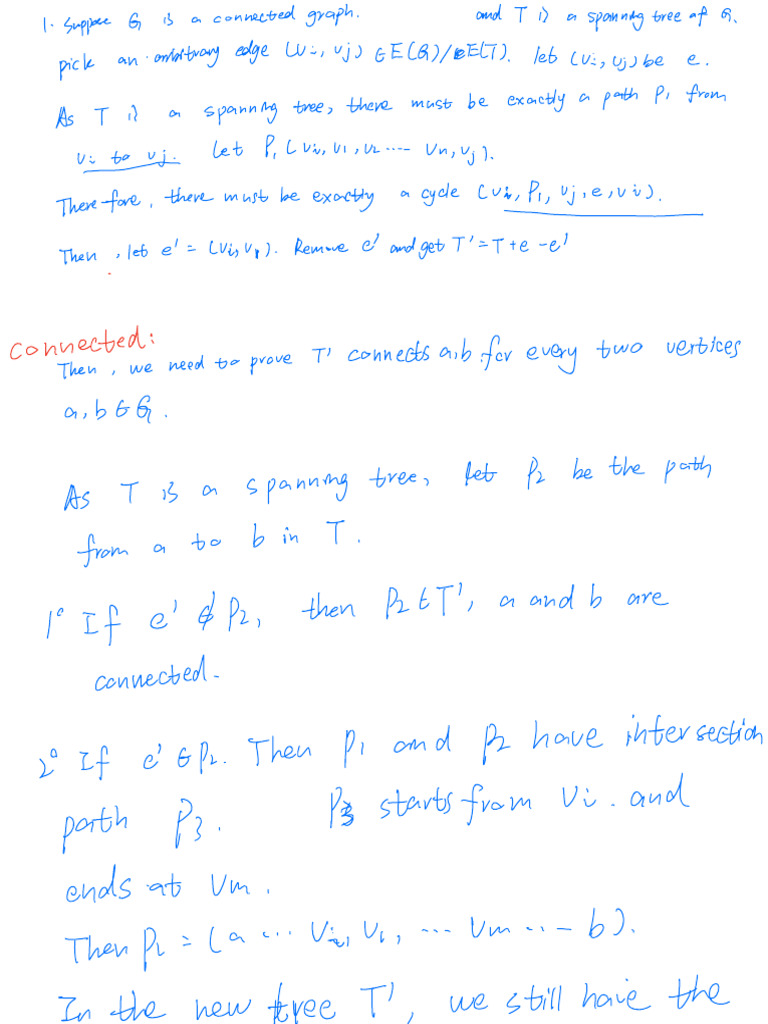 1. Suppose G is a connected graph. and T is a spanning tree of G.
pick an arbitrary edge (vi, vj) ∈ E(G)/E(T). let (vi, vj) be e.
As T is a spanning tree, there must be exactly a path P1 from
vi to vj. Let P1 (vi, v1, v2 ---- vn, vj).
Therefore, there must be exactly a cycle (vi, P1, vj, e, vi).
Then, let e' = (vi, v1). Remove e' and get T' = T + e - e'
Connected:
Then, we need to prove T' connects a, b for every two vertices
a, b ∈ G.
As T is a spanning tree, let P2 be the path
from a to b in T.
1° If e' ∉ P2, then P2 ∈ T', a and b are
connected.
2° If e' ∈ P2. Then P1 and P2 have intersection
path P3. P3 starts from vi. and
ends at vm.
Then P2 = (a ... vi, v1, ... vm ... b).
In the new tree T', we still have the